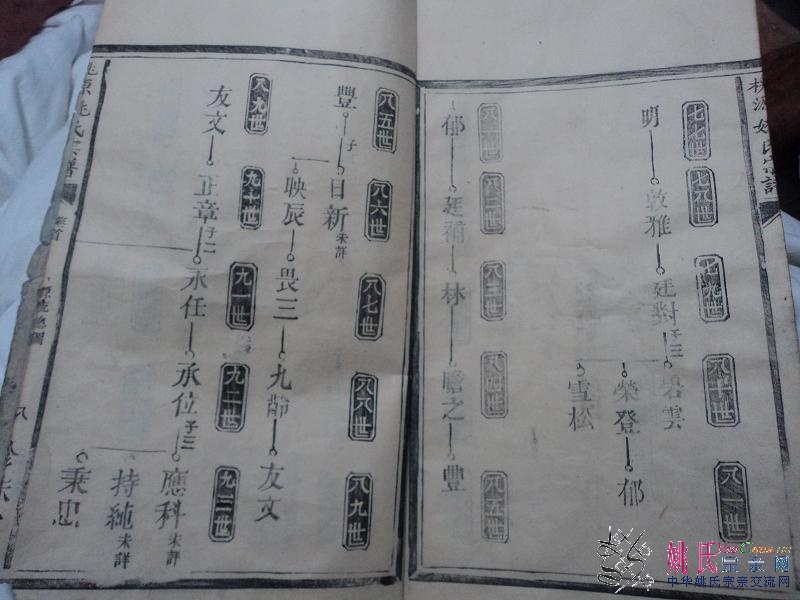 七七世
七八世
七九世
八十世
八一世
明
敦雅
廷對 子三
碧雲
榮登
郁
雪松
八二世
八三世
八四世
八五世
郁
廷補
林
瞻之
豐
八五世
八六世
八七世
八八世
八九世
豐 子
日新 未詳
映辰
畏三
九齡
友文
八九世
九十世
九一世
九二世
九三世
友文
正章 子二
承任
承位 子三
應科 未詳
持純 未詳
秉忠
姚氏
宗亲网
中华姚氏宗亲交流网